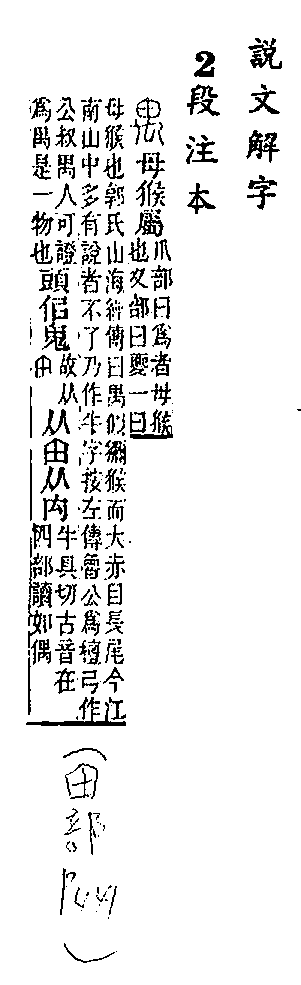 說文解字
2段注本
禺 母猴屬 爪部曰爲者母猴
也夊部曰夔一曰
母猴也郭氏山海經傳曰禺似獼猴而大赤目長尾今江
南山中多有說者不了乃作牛字按左傳魯公爲檀弓作
公叔禺人可證
爲禺是一物也 頭佀鬼 故从
甶 从甶从禸 牛具切古音在
四部讀如偶
(甶部